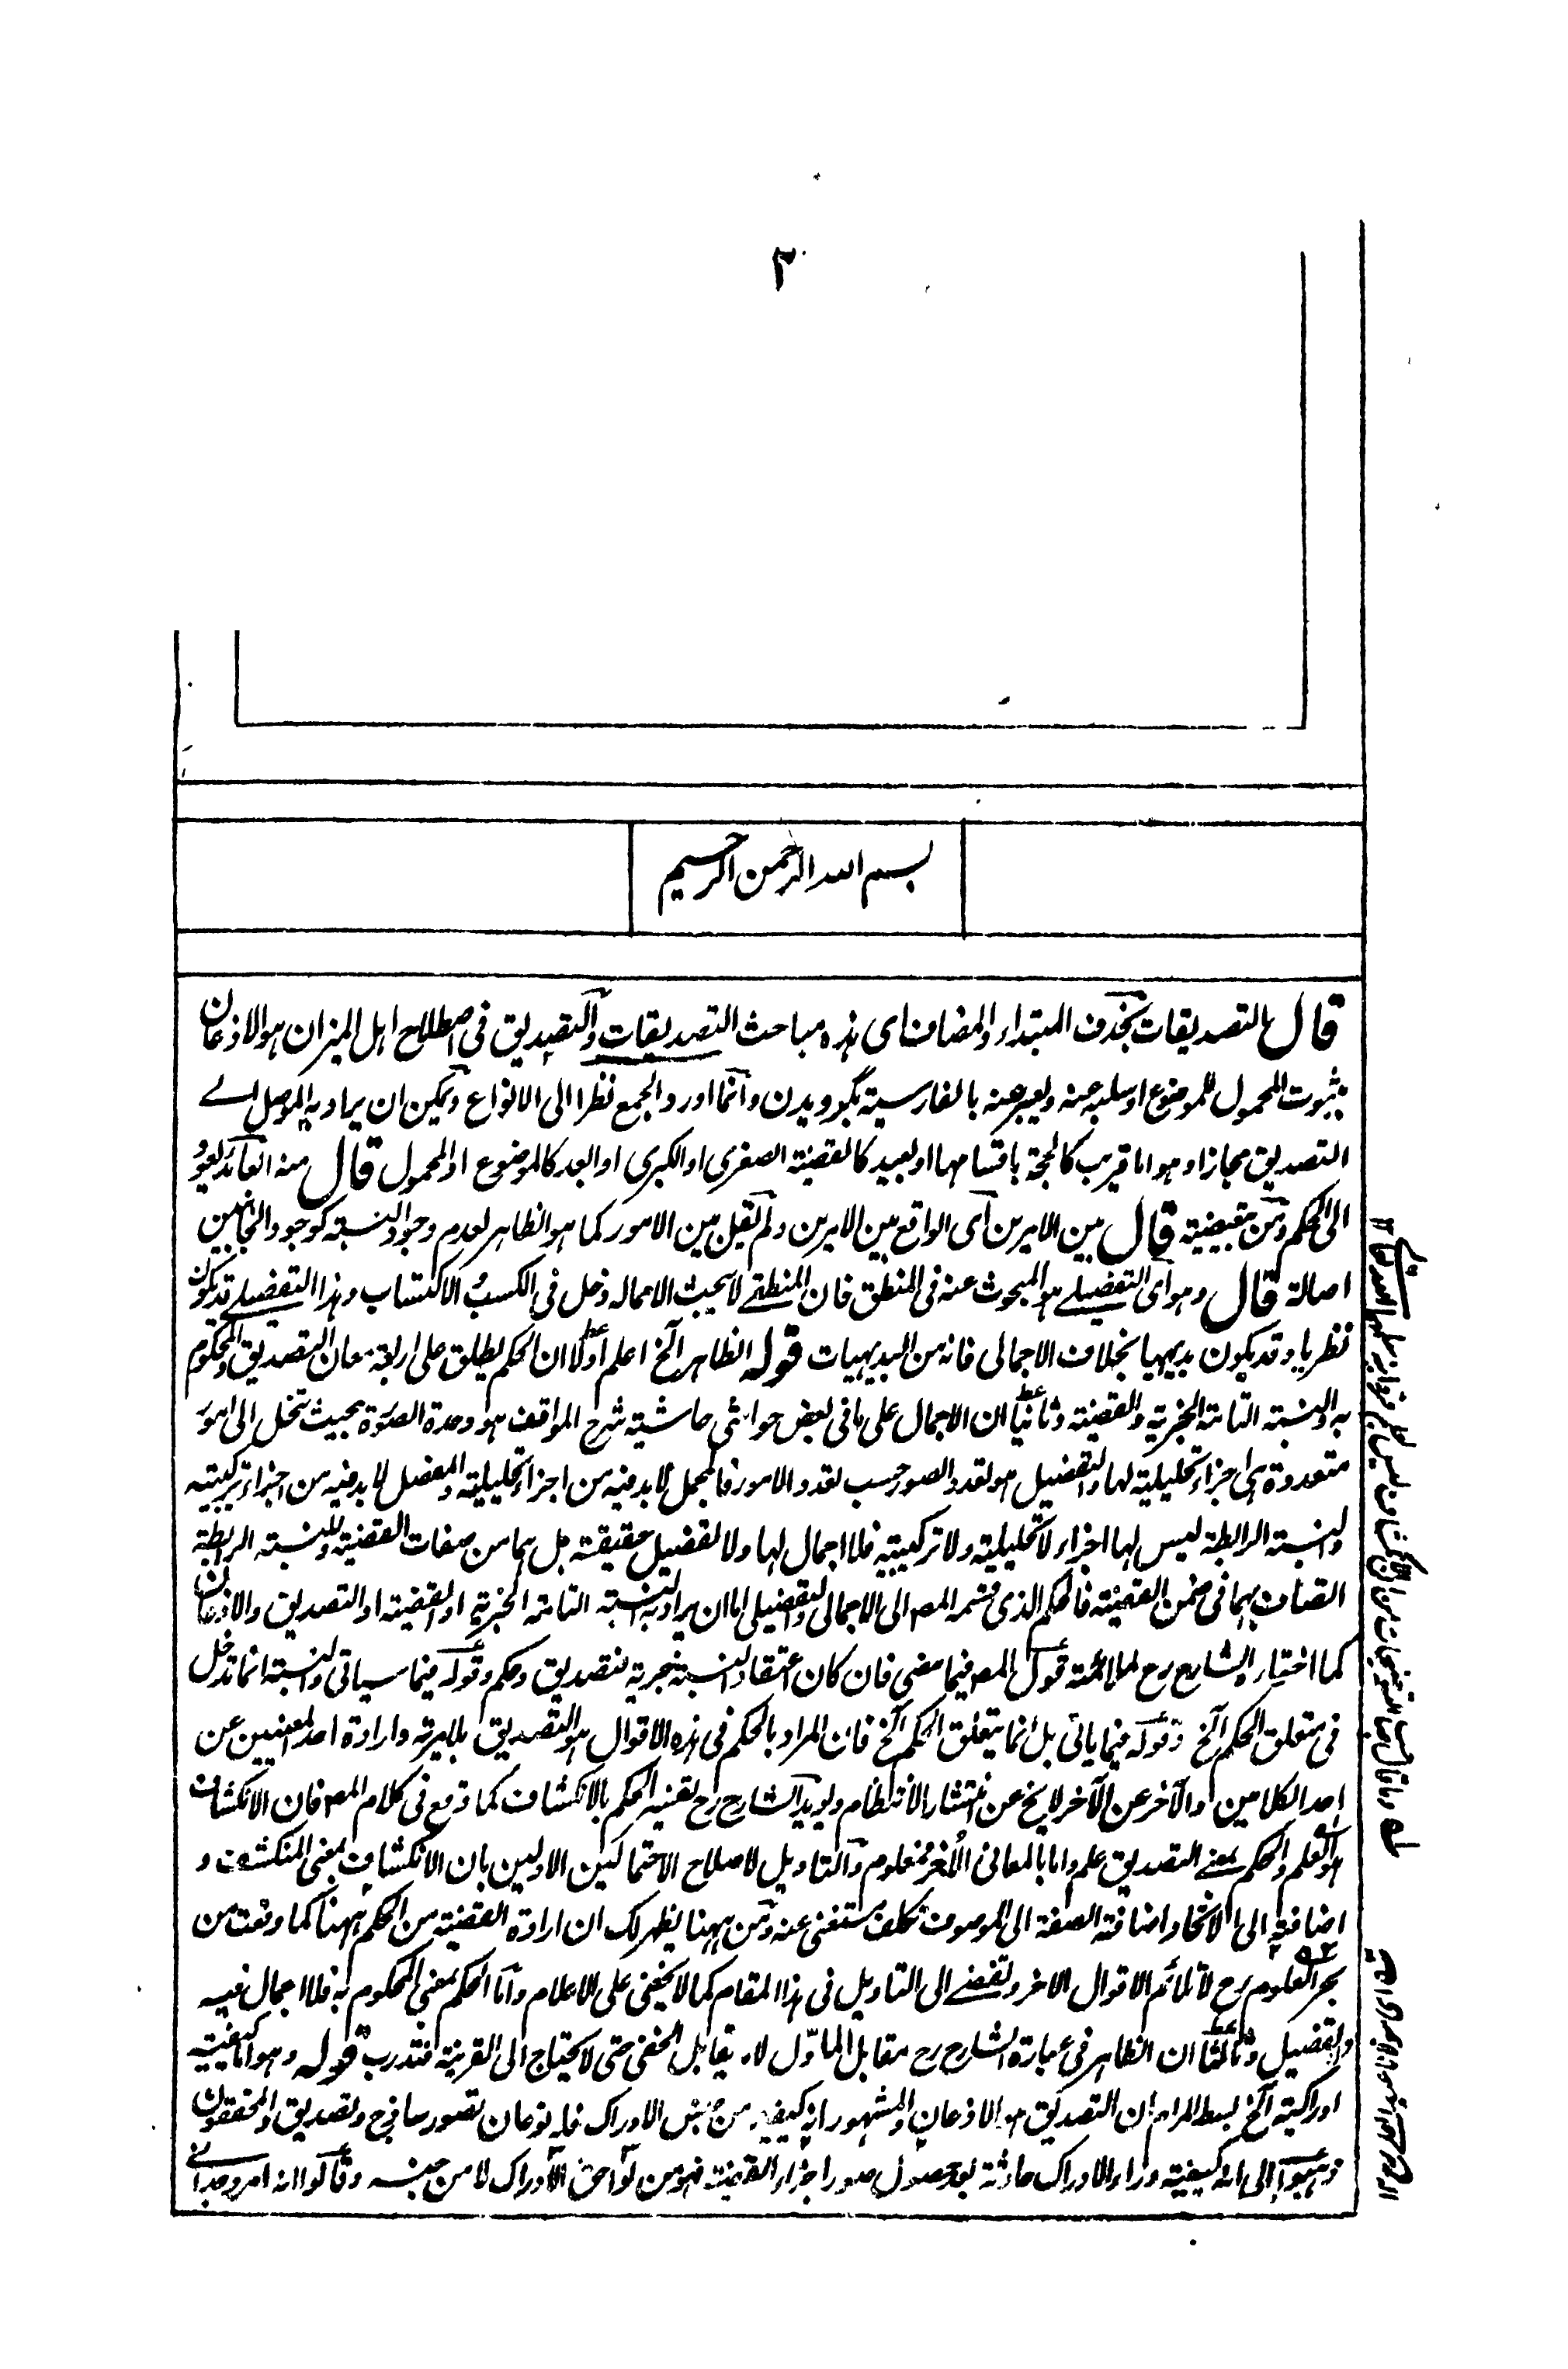 ٣
بسم الله الرحمن الرحيم
قال التصديقات بحذف المبتداء والمضاف اى هذه مباحث التصديقات والتصديق فى اصطلاح اهل الميزان هو الاذعان
بثبوت المحمول للموضوع او سلبه عنه ويعبر عنه بالفارسية بگرويدن وانما اورد الجمع نظرا الى الانواع ويمكن ان يراد به الموصل الے
التصديق مجازا وهو اما قريب كالحجة باقسامها او بعيد كالقضية الصغرى او الكبرى او ابعد كالموضوع او المحمول قال منه العائد يعود
الى الحكم ومن تبعيضية قال بين الامرين اى الواقع بين الامرين ولم يقل بين الامور كما هو الظاهر لعدم وجود النسبة كوجود الجانبين
اصالة قال وهو اى التفصيلے هو المبحوث عنه فى المنطق فان المنطقے لا يبحث الا عما له دخل فى الكسب والاكتساب وهذا التفصيلے قد يكون
نظريا وقد يكون بديهيا بخلاف الاجمالى فانه من البديهيات قوله الظاهر الخ اعلم اولا ان الحكم يطلق على اربعة معان التصديق والمحكوم
به والنسبة التامة الخبرية والقضية وثانيا ان الاجمال على ما فى بعض حواشى حاشية شرح المواقف هو وحدة الصورة بحيث تنحل الى امور
متعددة هى اجزاء تحليلية لها والتفصيل هو تعدد الصور حسب تعدد الامور فالمجمل لا بد فيه من اجزاء تحليلية والمفصل لا بد فيه من اجزاء تركيبية
والنسبة الرابطة ليس لها اجزاء لا تحليلية ولا تركيبية فلا اجمال لها ولا تفصيل حقيقة بل هما من صفات القضية وللنسبة الرابطة
اتصاف بهما فى ضمن القضية فالحكم الذى قسمه المص الى الاجمالى والتفصيلى اما ان يراد به النسبة التامة الخبرية او القضية او التصديق والاذعان
كما اختاره الشارح رح لملائمة قول المص فيما مضى فان كان اعتقادا لنسبة خبرية فتصديق وحكم وقوله فيما سياتى والنسبة انما تدخل
فى متعلق الحكم الخ وقوله فيما ياتى بل انما يتعلق الحكم الخ فان المراد بالحكم فى هذه الاقوال هو التصديق بلا مرية وارادة احد المعنيين عن
احد الكلامين والآخر عن الآخر لا يخ عن انتشار الانتظام ويويد الشارح رح تفسير الحكم بالانكشاف كما وقع فى كلام المص فان الانكشاف
هو العلم والحكم بمعنے التصديق علم واما بالمعانى الاخر فمعلوم والتاويل لاصلاح الاحتمالين الاولين بان الانكشاف بمعنى المنكشف و
اضافته الى الاتحاد اضافة الصفة الى الموصوف تكلف مستغنى عنه ومن ههنا يظهر لك ان ارادة القضية من الحكم ههنا كما وقعت من
بحر العلوم رح لا تلائم الاقوال الاخر وتفضے الى التاويل فى هذا المقام كما لا يخفى على الاعلام واما الحكم بمعنى المحكوم به فلا اجمال فيه
والتفصيل وثالثا ان الظاهر فى عبارة الشارح رح مقابل الماوّل لا يقابل الخفى حتى لا يحتاج الى القرينة فتدرب قوله وهو اما كيفية
ادراكية الخ بسط المرام ان التصديق هو الاذعان والمشهور انه كيفية من جنس الادراك فله نوعان تصور ساذج وتصديق والمحققون
ذهبوا الى انه كيفية وراء الادراك حادثة بعد حصول صور اجزاء القضية فهو من لواحق الادراك لا من جنسه وقالوا انه امر وجدانے